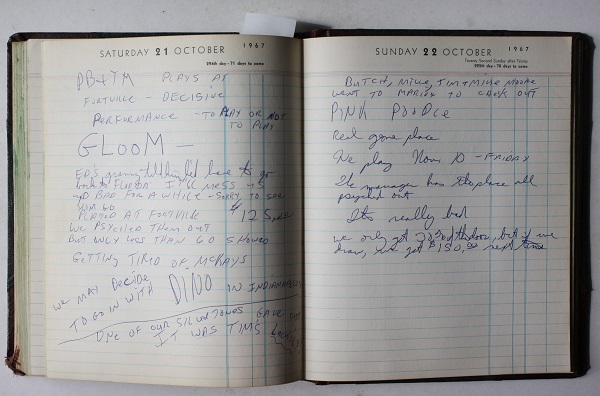 SATURDAY 21 OCTOBER 1967
294th day - 71 days to come
PB+TM PLAYS AT
FORTVILLE - DECISIVE
PERFORMANCE - TO PLAY OR NOT
TO PLAY
GLOOM -
ED'S granny told him he'd have to go
back to FLORIDA I'LL MESS US
UP BAD FOR A WHILE - SORRY TO SEE
HIM GO
PLAYED AT FORTVILLE $12
WE PSYCHED THEM OUT
BUT ONLY LESS THAN 60 SHOWED
GETTING TIRED OF MCKAYS
WE MAY DECIDE
TO GO IN WITH DINO IN INDIANAPOLIS
ONE OF OUR SILVERTONES GAVE OUT
IT WAS TIM'S
SUNDAY 22 OCTOBER 1967
Twenty Second Sunday after Trinity
295th day - 70 days to come
BUTCH, MIKE, TIM + MIKE MOORE
WENT TO MARION TO CHECK OUT
PINK POODLE
Real gone place
We play Nov. 10 - FRIDAY
The manager has the place all
psyched out
It's really bad
we only get door, but if we
draw, we get $150.00 next time